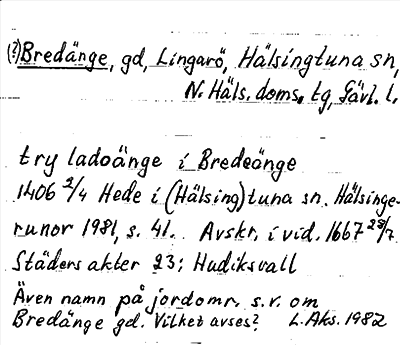 (?) Bredänge, gd, Lingarö, Hälsingtuna sn,
N. Häls. doms. tg, Gävl. l.
try ladoänge i Bredeänge
1406 2/4 Hede i (Hälsing)tuna sn. Hälsinge-
runor 1981, s. 41. Avskr. i vid. 1667 28/7
Städers akter 23: Hudiksvall
Även namn på jordomr. s.v. om
Bredänge gd. Vilket avses? L. Aks. 1982